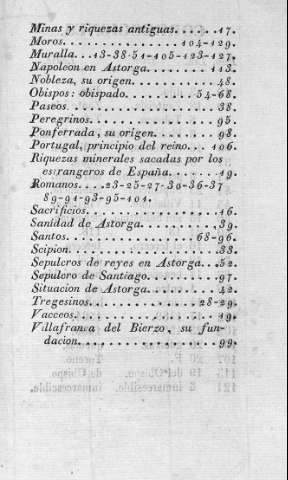 Minas y riquezas antiguas......17.
Moros..................104-129.
Muralla...13-38-51-105-123-127.
Napoleon en Astorga.........113.
Nobleza, su origen............48.
Obispos: obispado..........54-68.
Paseos.......................38.
Peregrinos...................95.
Ponferrada, su origen.........98.
Portugal, principio del reino...106.
Riquezas minerales sacadas por los
estrangeros de España.......19.
Romanos....23-25-27-30-36-37
89-91-93-95-101.
Sacrificios...................16.
Sanidad de Astorga............39.
Santos....................68-96.
Scipion......................33.
Sepulcros de reyes en Astorga..52.
Sepulcro de Santiago..........97.
Situacion de Astorga..........42.
Tregesinos................28-29.
Vacceos.....................19.
Villafranca del Bierzo, su fun-
dacion....................99.